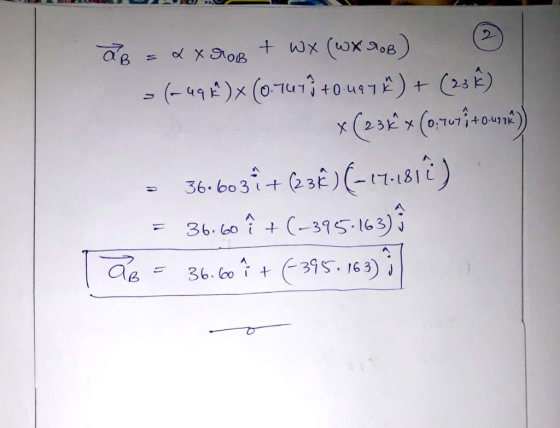 2
a⃗_B = α × r_OB + ω × (ω × r_OB)
= (-49k̂) × (0.747ĵ + 0.497k̂) + (23k̂)
× (23k̂ × (0.747ĵ + 0.497k̂))
= 36.603î + (23k̂)(-17.181î)
= 36.60î + (-395.163)ĵ
a⃗_B = 36.60î + (-395.163)ĵ